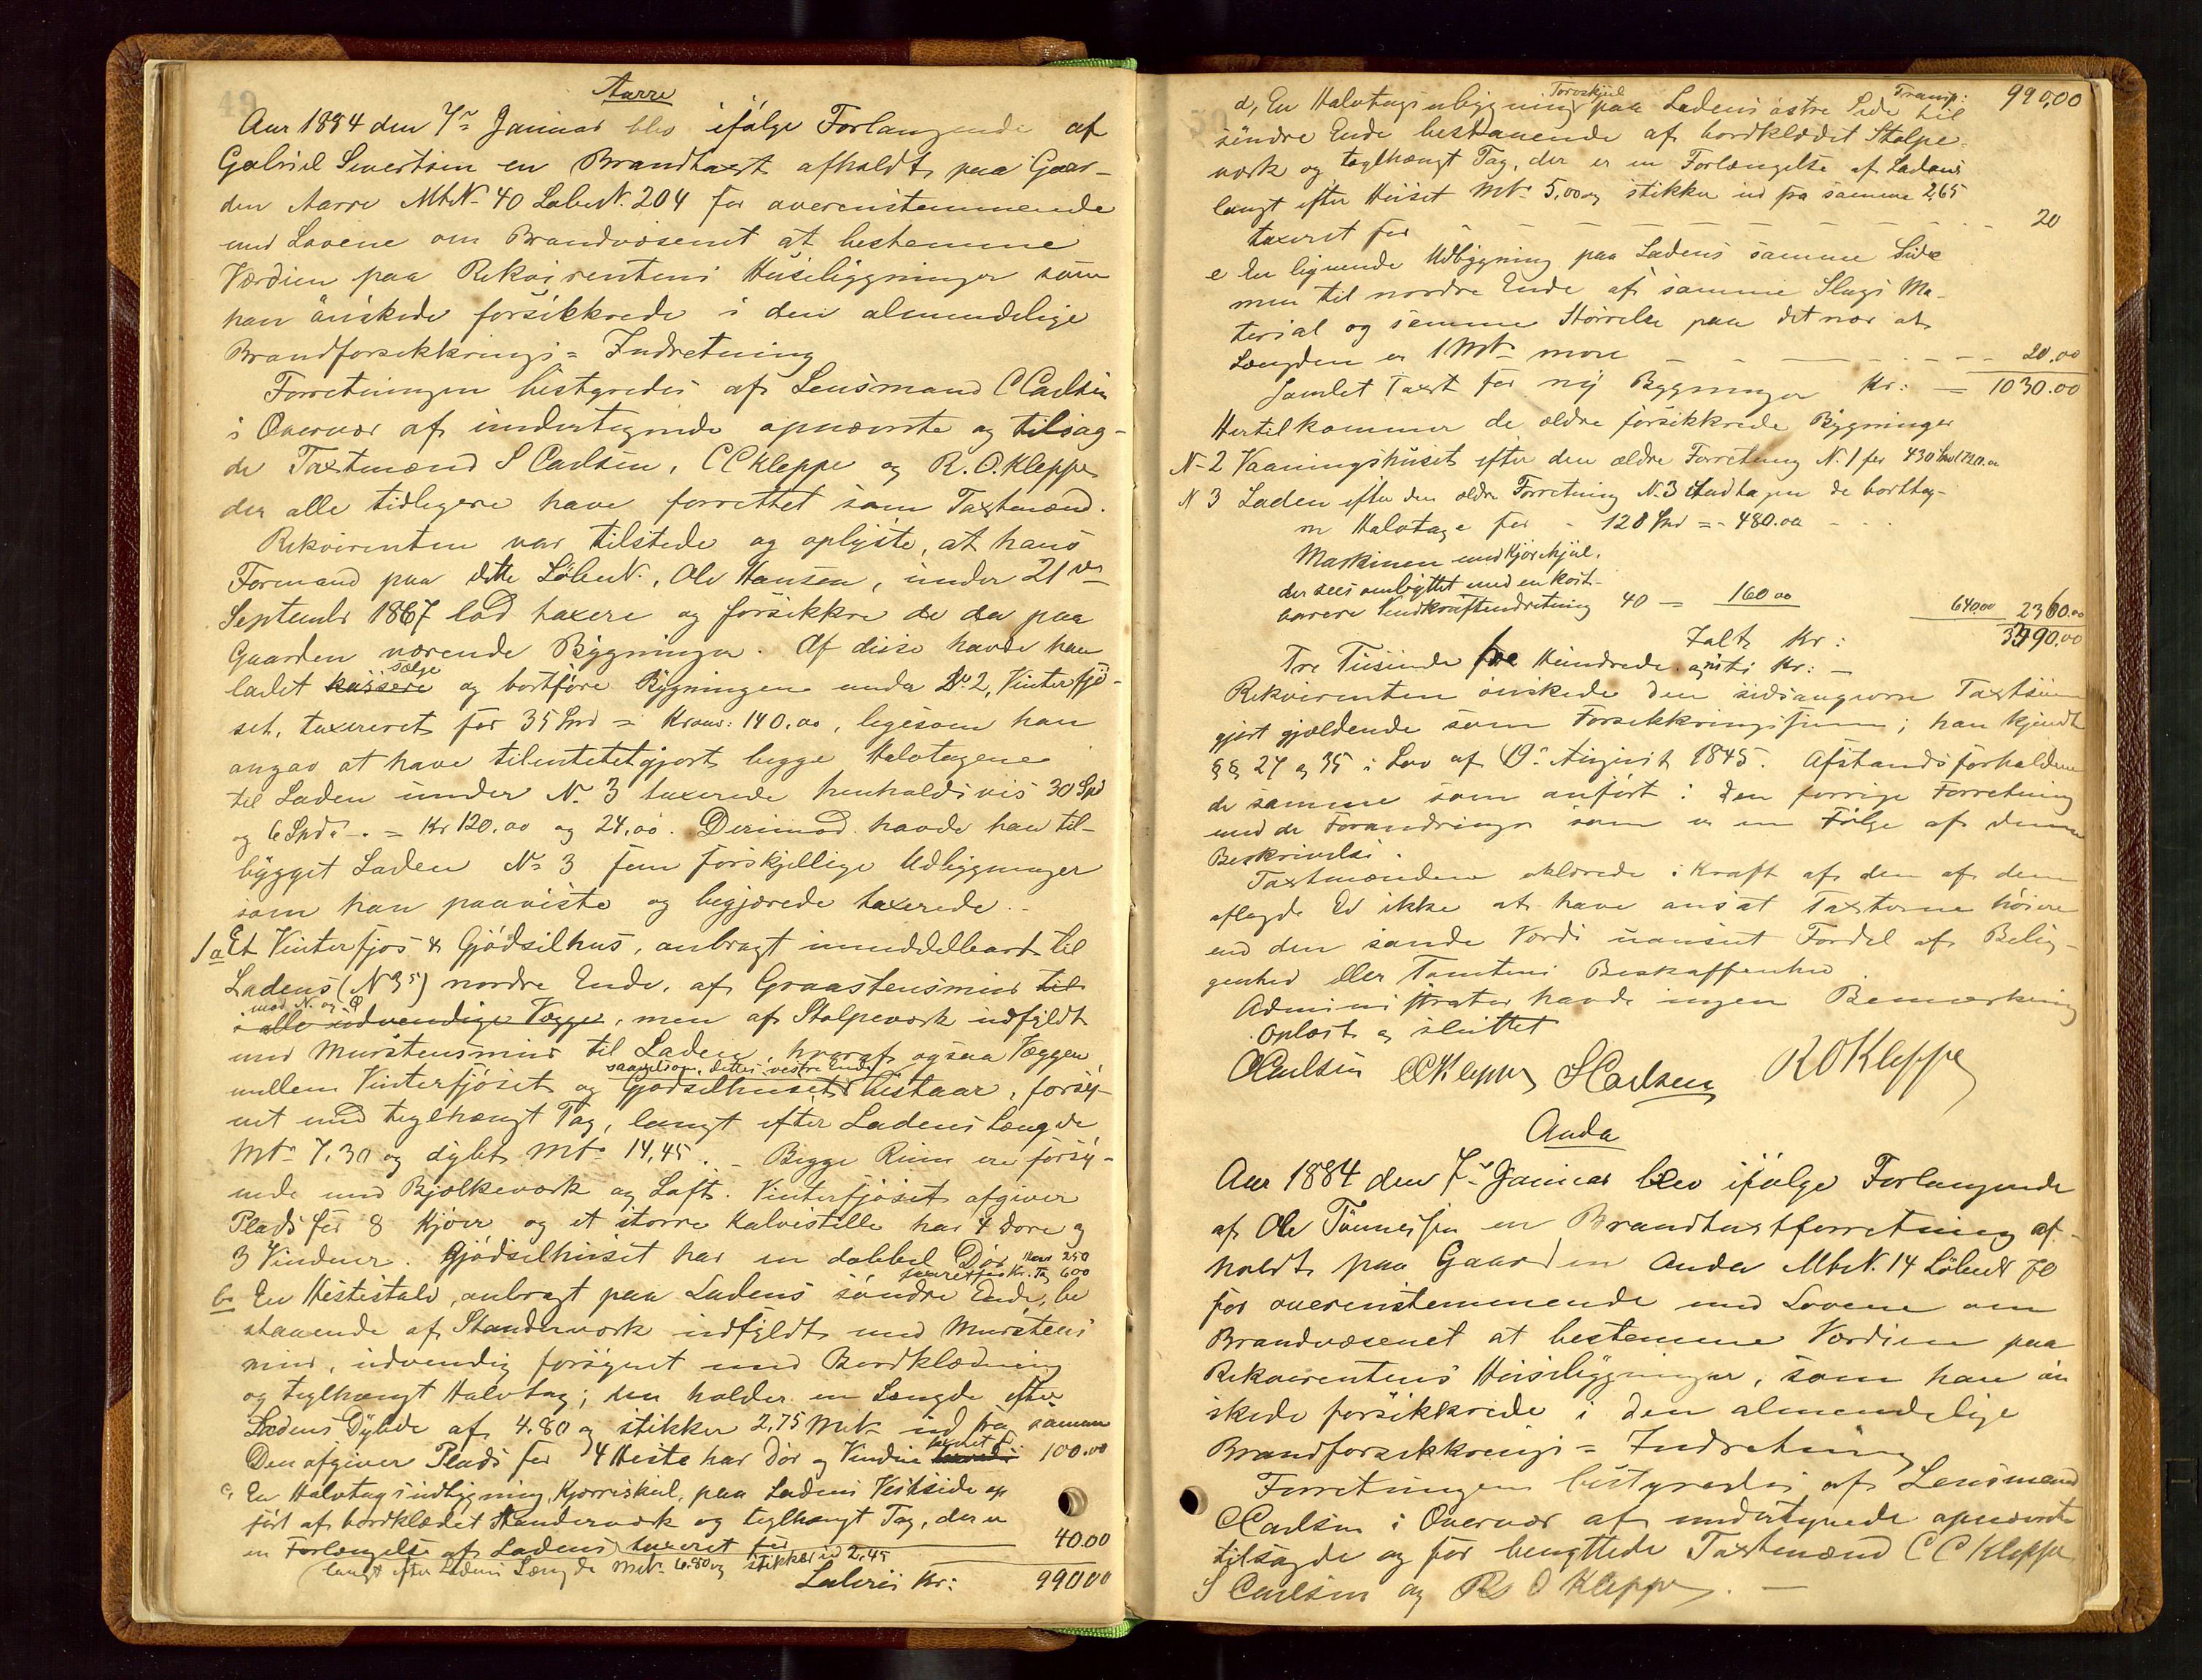 49
Aarre
Aar 1884 den 7de Januar blev ifølge Forlangende af
Gabriel Sivertsen en Brandtaxt afholdt paa Gaar-
den Aarre MtrN. 40 LøbeN. 204 for overenstemmende
med Lovene om Brandvæsenet at bestemme
Værdien paa Rekvirentens Husebygninger som
han ønskede forsikkrede i den almindelige
Brandforsikkrings= Indretning
Forretningen bestyredes af Lensmand C Carlsen
i Overvær af undertegnede opnævnte og tilsag-
de Taxtmænd S Carlsen, C C Kleppe og R. O. Kleppe
der alle tidligere have forrettet som Taxtmænd.
Rekvirenten var tilstede og oplyste, at hans
Formand paa dette LøbeN., Ole Hansen, under 21de
September 1867 lod taxere og forsikkre de da paa
Gaarden værende Bygninger. Af disse havde han
sælge
ladet kassere og bortføre Bygningen under No 2, Vinterfjø-
set, taxereret for 35 Spd = Kroner: 140.00, ligesom han
angav at have tilentetetgjort begge Halvtagene
til Laden under N. 3 taxerede henholdsvis 30 Spd
og 6 Spd. = Kr 120.00 og 24.00. Derimod havde han til-
bygget Laden No 3 fem forskjellige Udbygninger
som han paaviste og begjærede taxerede.
1 a Et Vinterfjøs & Gjødselhus, anbragt umiddelbart til
Ladens (N 3) nordre Ende, af Graastensmur til
mod N. og Ø
i alle udvendige Vægge, men af Stolpeværk udfyldt
med Murstensmur til Laden, hvoraf ogsaa Væggen
saavelsom dettes vestre Ende
mellem Vinterfjøset og Gjødselhuset bestaar, forsy-
net med teglhængt Tag, langt efter Ladens Længde
Mtr 7.30 og dybt Mtr 14,45. - Begge Rum ere forsy-
nede med Bjælkeværk og Loft. Vinterfjøset afgiver
Plads for 8 Kjøer og et større Kalvestelle har 4 Døre og
3 Vinduer. Gjødselhuset har en dobbel Dør Mur 250
taxeret for Kr. Tag 600
b En Hestestald, anbragt paa Ladens søndre Ende, be
staaende af Standerværk udfyldt med Murstens
mur, udvendig forsynet med Bordklædning
og teglhængt Halvtag; den holder en Længde efter
Ladens Dybde af 4.80 og stikker 2,75 Mtr ud fra samme
taxeret f.
Den afgiver Plads for 4 Heste har Dør og Vindue 100.00
c, En Halvtagsudbygning, Kjærreskul, paa Ladens Vestside op
ført af bordklædet Standerværk og teglhængt Tag, der er
en Forlængelse af Ladens taxeret for 40.00
(langt efter Ladens Længde Mtr 6.80 og stikker ud 2,45
Lateris Kr: 990.00
50
Torvskjul
Transp:
d, En Halvtagsubygning paa Ladens østre Side til 990,00
søndre Ende bestaaende af bordklædet Stolpe-
værk og teglhængt Tag, der er en Forlængelse af Ladens
langt efter Huset Mtr 5,00 og stikker ud fra samme 2,65
taxeret for - - - - - - 20
e En lignende Udbygning paa Ladens samme Side
men til nordre Ende af samme Slags Ma-
terial og samme Størrelse paa det nær at
Længden er 1 Mtr more - - - - - 20.00
Samlet Taxt for ny Bygninger Kr: = 1030.00
Hertil kommer de ældre forsikkrede Bygninger
N 2 Vaaningshuset efter den ældre Forretning N. 1 for 430 Spd 1720.00
N 3 Laden efter den ældre Forretning N. 3 undtagen de borttag-
ne Halvtage for - 120 Spd = - 480.00 - - -
Maskinen med Kjørehjul,
der sees ombyttet med en kost-
barere Vendkraftindretning 40 = 160 00
640.00 2360.00
Ialt Kr: 3390.00
Tre Tusinde tre Hundrede og niti Kr: -
Rekvirenten ønskede den sidsangivne Taxtsum
gjort gjældende som Forsikkringssum; han kjendte
§§ 27 og 35 i Lov af 19de August 1845. Afstandsforholdene
de samme som anført i den forrige Forretning
med de Forandringer som er en Følge af denne
Beskrivelse.
Taxtmændene erklærede i Kraft af den af dem
aflagde Ed ikke at have ansat Taxterne høiere
end den sande Værdi uanseet Fordel af Belig-
genhed eller Tomtens Beskaffenhed
Administrator havde ingen Bemærkning
Oplæst og sluttet
CCarlsen CCKleppe SCarlsen ROKleppe
Anda
Aar 1884 den 7de Januar blev ifølge Forlangende
af Ole Tønnesen en Brandtaxtforretning af-
holdt paa Gaarden Anda MtrN. 14 LøbeN 70
for overenstemmende med Lovene om
Brandvæsenet at bestemme Værdien paa
Rekvirentens Husebygninger, som han øn
skede forsikkrede i den almendelige
Brandforsikkrings= Indretning
Forretningen bestyredes af Lensmand
CCarlsen i Overvær af undertegnede opnævnte
tilsagde og før benyttede Taxtmænd C C Kleppe
S Carlsen og R O Kleppe. -